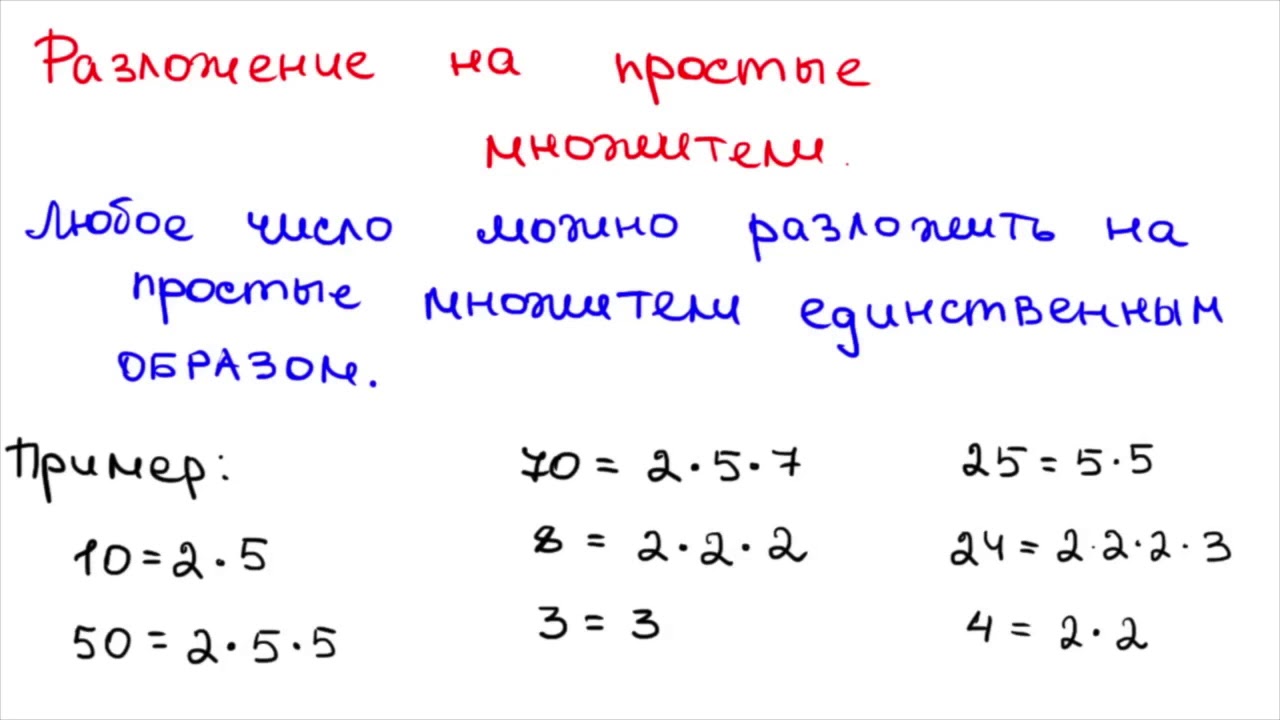 Разложение на простые
множители.
Любое число можно разложить на
простые множители единственным
ОБРАЗОМ.
Пример:
10 = 2 · 5
50 = 2 · 5 · 5
70 = 2 · 5 · 7
8 = 2 · 2 · 2
3 = 3
25 = 5 · 5
24 = 2 · 2 · 2 · 3
4 = 2 · 2